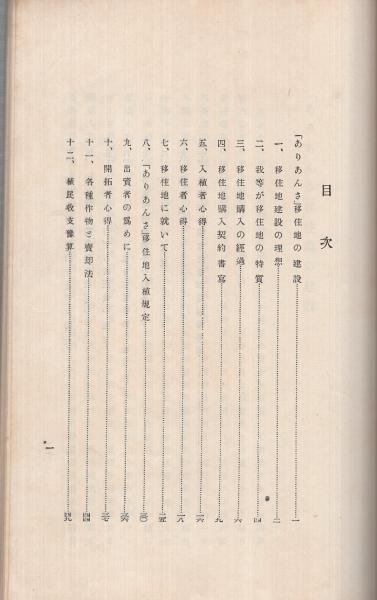 目次
「ありあんさ」移住地の建設……一
一、移住地建設の理想……二
二、我等が移住地の特質……四
三、移住地購入の經過……六
四、移住地購入契約書寫……九
五、入植者心得……一六
六、移住者心得……一八
七、移住地に就いて……二五
八、「ありあんさ」移住地入植規定……三〇
九、出資者の爲めに……三六
十、開拓者心得……三七
十一、各種作物と賣却法……四四
十二、植民收支豫算……四九
一